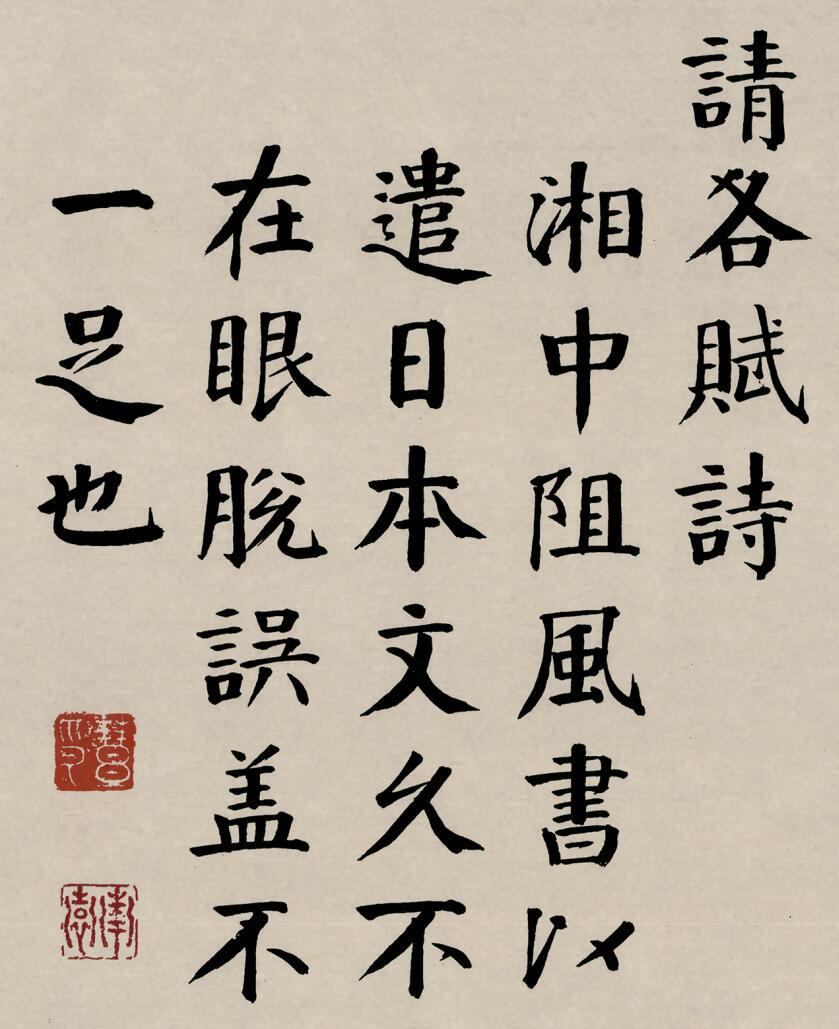 請各賦詩
湘中阻風書以
遣日本文久不
在眼脫誤盖不
一足也